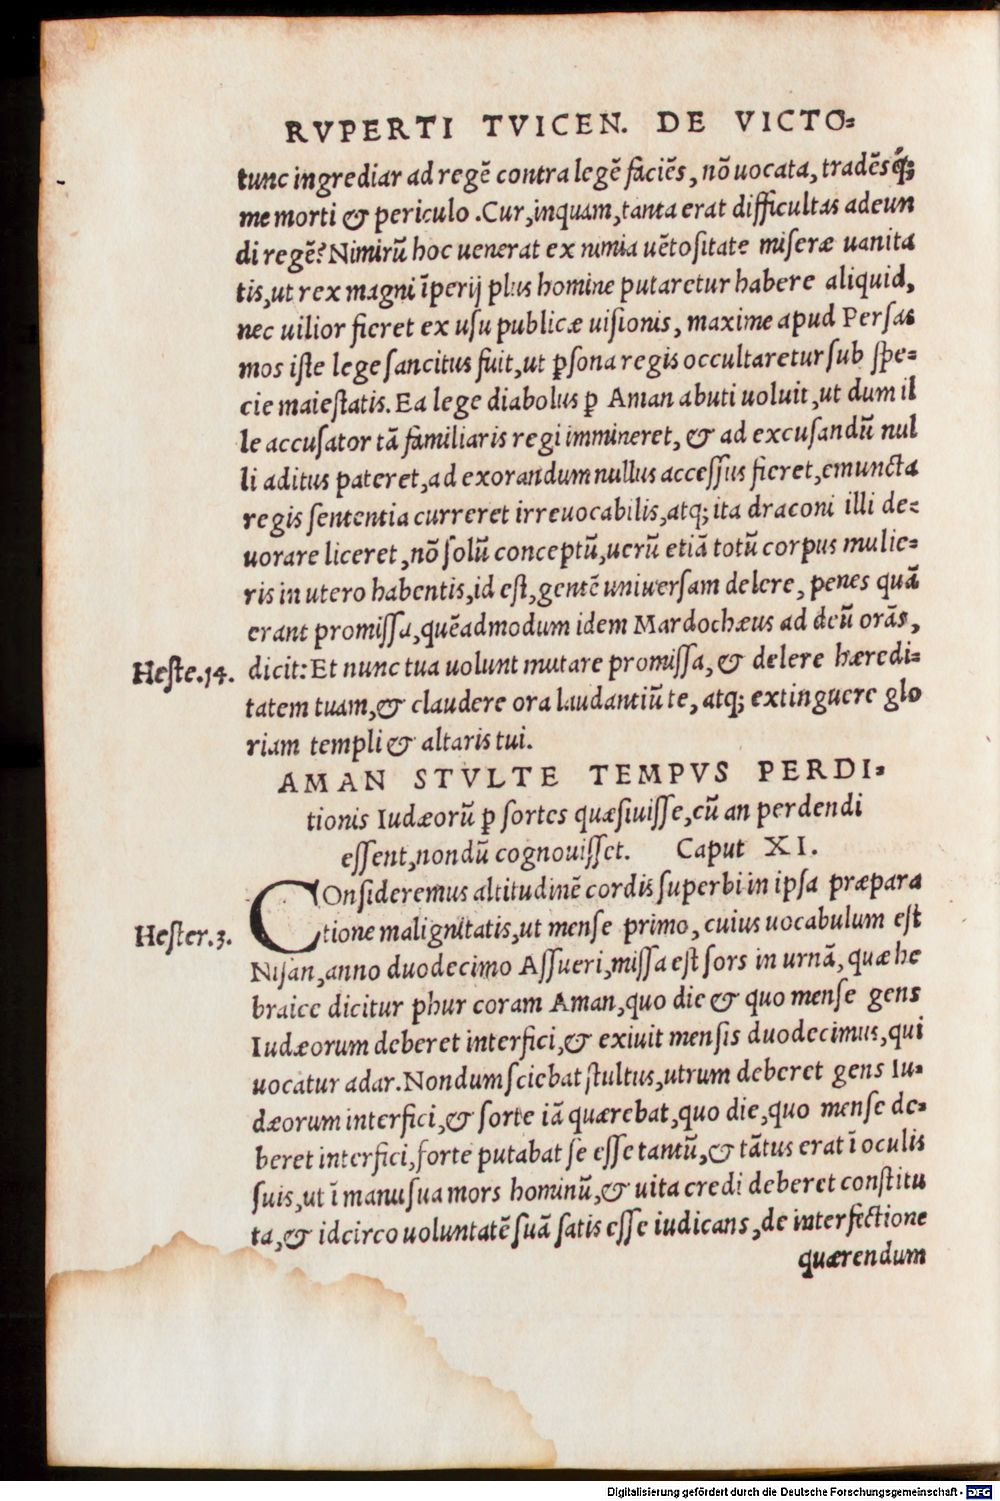 RVPERTI TVICEN. DE VICTO=
tunc ingrediar ad regē contra legē faciēs, nō uocata, tradēsq́;
me morti & periculo. Cur, inquam, tanta erat difficultas adeun
di regē? Nimirū hoc uenerat ex nimia uētositate miseræ uanita
tis, ut rex magni īperij plus homine putaretur habere aliquid,
nec uilior fieret ex usu publicæ uisionis, maxime apud Persas
mos iste lege sancitus fuit, ut ꝑsona regis occultaretur sub spe=
cie maiestatis. Ea lege diabolus ꝑ Aman abuti uoluit, ut dum il
le accusator tā familiaris regi immineret, & ad excusandū nul
li aditus pateret, ad exorandum nullus accessus fieret, emuncta
regis sententia curreret irreuocabilis, atq; ita draconi illi de=
uorare liceret, nō solū conceptū, uerū etiā totū corpus mulie=
ris in utero habentis, id est, gentē uniuersam delere, penes quā
erant promissa, quēadmodum idem Mardochæus ad deū orās,
Heste.14. dicit: Et nunc tua uolunt mutare promissa, & delere hæredi=
tatem tuam, & claudere ora laudantiū te, atq; extinguere glo
riam templi & altaris tui.
AMAN STVLTE TEMPVS PERDI=
tionis Iudæorū ꝑ sortes quæsiuisse, cū an perdendi
essent, nondū cognouisset. Caput XI.
COnsideremus altitudinē cordis superbi in ipsa præpara
Hester.3. tione malignitatis, ut mense primo, cuius uocabulum est
Nisan, anno duodecimo Assueri, missa est sors in urnā, quæ he
braice dicitur phur coram Aman, quo die & quo mense gens
Iudæorum deberet interfici, & exiuit mensis duodecimus, qui
uocatur adar. Nondum sciebat stultus, utrum deberet gens Iu=
dæorum interfici, & sorte iā quærebat, quo die, quo mense de=
beret interfici, forte putabat se esse tantū, & tātus erat ī oculis
suis, ut ī manu sua mors hominū, & uita credi deberet constitu
ta, & idcirco uoluntatē suā satis esse iudicans, de interfectione
quærendum
Digitalisierung gefördert durch die Deutsche Forschungsgemeinschaft - DFG